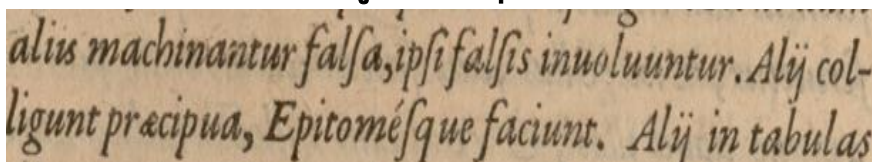 alius machinantur falſa, ipſi falſis inuoluuntur. Alij col-
ligunt præcipua, Epitoméſque faciunt. Alij in tabulas